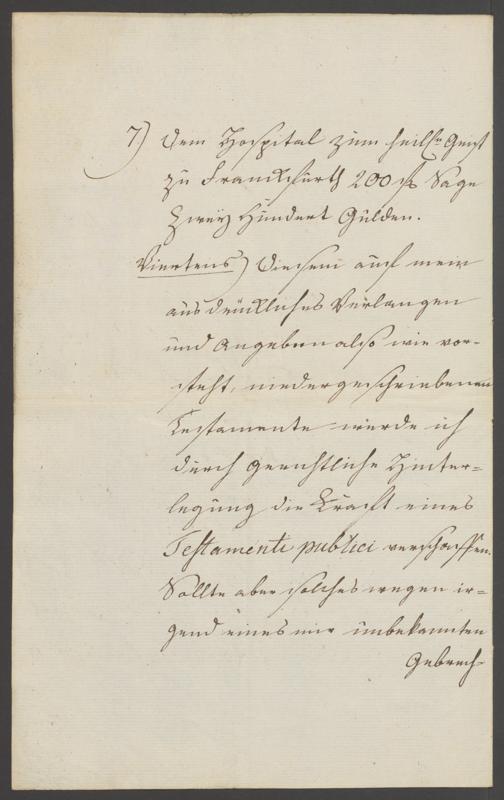 7) dem Hospital zum heilgn Geist
zu Franckfurth 200 fl Sage
Zweÿ Hundert Gulden.
Viertens) Diesem auf mein
ausdrückliches Verlangen
und Angeben also wie vor-
steht, niedergeschriebenen
Testamente werde ich
durch gerichtliche Hinter-
legung die Kraft eines
Testamenti publici verschaffen.
Sollte aber solches wegen ir-
gend eines mir unbekannten
Gebrech-